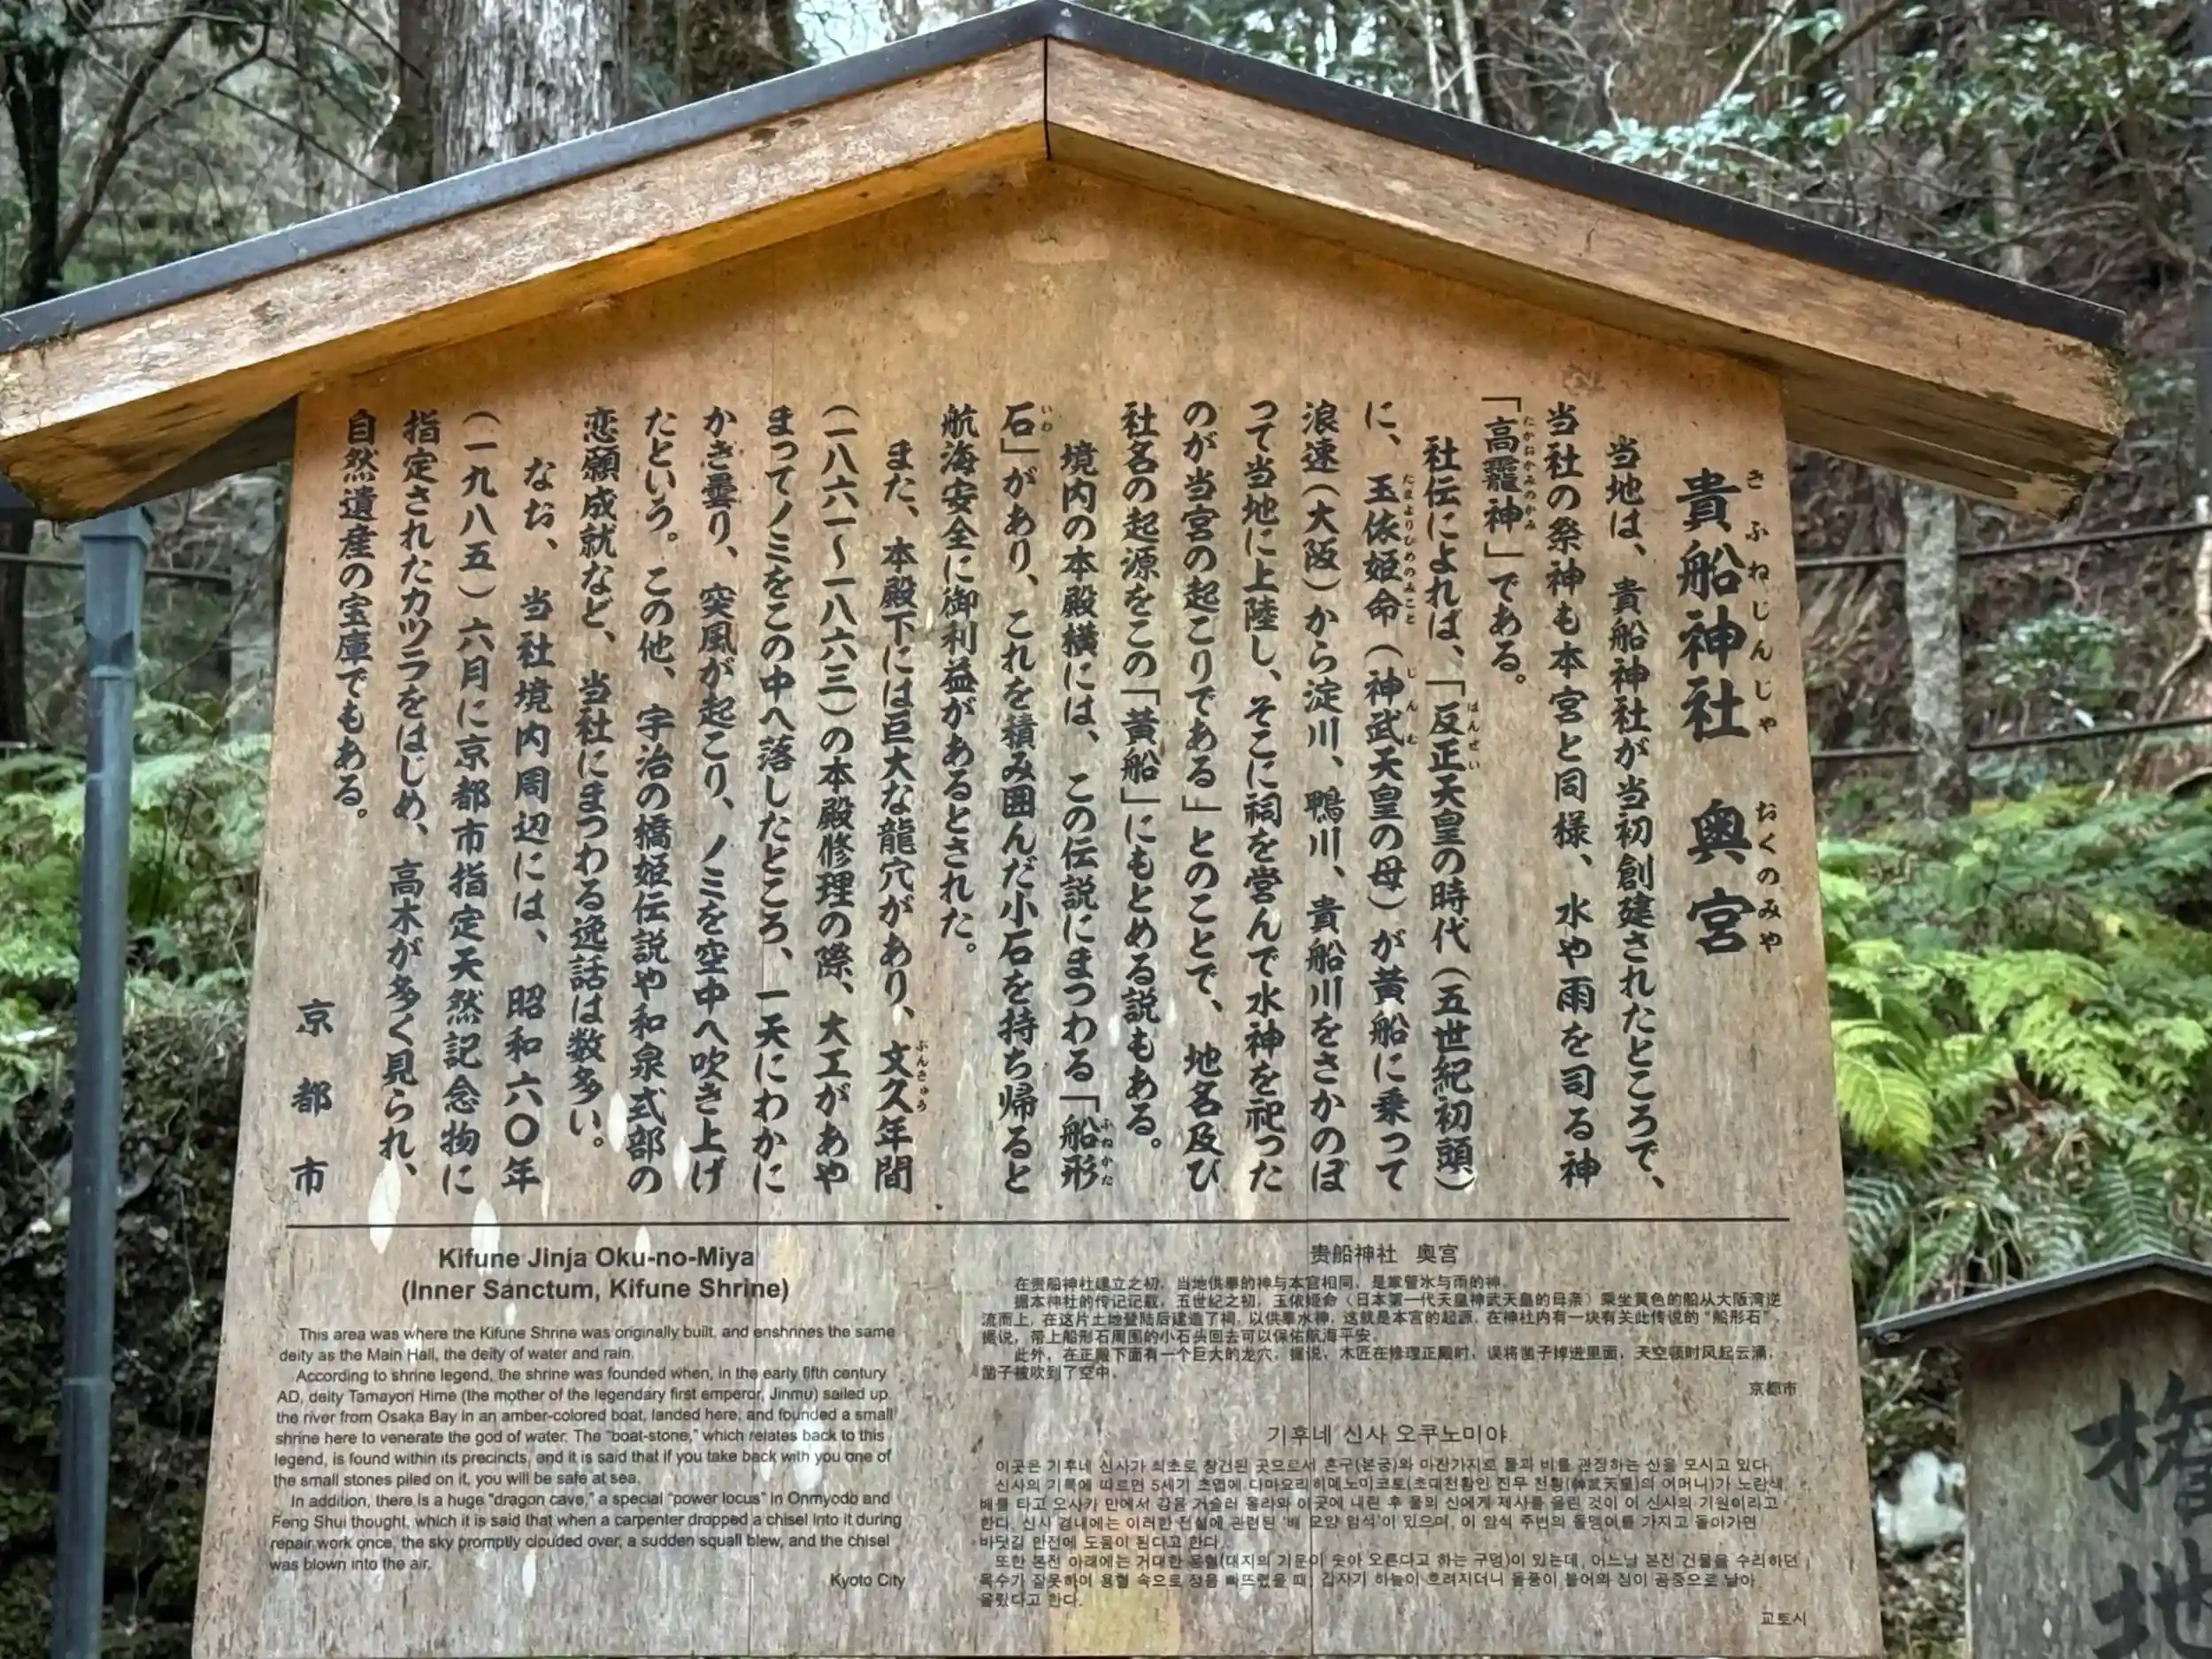 貴船神社 奥宮
きふねじんじゃ おくのみや
当地は、貴船神社が当初創建されたところで、
当社の祭神も本宮と同様、水や雨を司る神
「高龗神」である。
たかおかみのかみ
社伝によれば、「反正天皇の時代(五世紀初頭)
はんぜい
に、玉依姫命(神武天皇の母)が黄船に乗って
たまよりひめのみこと じんむ
浪速(大阪)から淀川、鴨川、貴船川をさかのぼ
って当地に上陸し、そこに祠を営んで水神を祀った
のが当宮の起こりである」とのことで、地名及び
社名の起源をこの「黄船」にもとめる説もある。
境内の本殿横には、この伝説にまつわる「船形
ふねがた
石」があり、これを積み囲んだ小石を持ち帰ると
いわ
航海安全に御利益があるとされた。
また、本殿下には巨大な龍穴があり、文久年間
ぶんきゅう
(一八六一～一八六三)の本殿修理の際、大工があや
まってノミをこの中へ落したところ、一天にわかに
かき曇り、突風が起こり、ノミを空中へ吹き上げ
たという。この他、宇治の橋姫伝説や和泉式部の
恋願成就など、当社にまつわる逸話は数多い。
なお、当社境内周辺には、昭和六〇年
(一九八五)六月に京都市指定天然記念物に
指定されたカツラをはじめ、高木が多く見られ、
自然遺産の宝庫でもある。
京都市
Kifune Jinja Oku-no-Miya
(Inner Sanctum, Kifune Shrine)
This area was where the Kifune Shrine was originally built, and enshrines the same
deity as the Main Hall, the deity of water and rain.
According to shrine legend, the shrine was founded when, in the early fifth century
AD, deity Tamayori Hime (the mother of the legendary first emperor, Jinmu) sailed up
the river from Osaka Bay in an amber-colored boat, landed here, and founded a small
shrine here to venerate the god of water. The "boat-stone," which relates back to this
legend, is found within its precincts, and it is said that if you take back with you one of
the small stones piled on it, you will be safe at sea.
In addition, there is a huge "dragon cave," a special "power locus" in Onmyodo and
Feng Shui thought, which it is said that when a carpenter dropped a chisel into it during
repair work once, the sky promptly clouded over, a sudden squall blew, and the chisel
was blown into the air.
Kyoto City
贵船神社 奥宫
在贵船神社建立之初，当地供奉的神与本宫相同，是掌管水与雨的神。
据本神社的传记记载，五世纪之初，玉依姬命（日本第一代天皇神武天皇的母亲）乘坐黄色的船从大阪湾逆
流而上，在这片土地登陆后建造了祠，以供奉水神，这就是本宫的起源。在神社内有一块有关此传说的“船形石”。
据说，带上船形石周围的小石头回去可以保佑航海平安。
此外，在正殿下面有一个巨大的龙穴。据说，木匠在修理正殿时，误将凿子掉进里面，天空顿时风起云涌，
凿子被吹到了空中。
京都市
기후네 신사 오쿠노미야
이곳은 기후네 신사가 최초로 창건된 곳으로서 혼구(본궁)와 마찬가지로 물과 비를 관장하는 신을 모시고 있다.
신사의 기록에 따르면 5세기 초엽에 다마요리히메노미코토(초대천황인 진무 천황(神武天皇)의 어머니)가 노란색
배를 타고 오사카 만에서 강을 거슬러 올라와 이곳에 내린 후 물의 신에게 제사를 올린 것이 이 신사의 기원이라고
한다. 신사 경내에는 이러한 전설에 관련된 '배 모양 암석'이 있으며, 이 암석 주변의 돌멩이를 가지고 돌아가면
바닷길 안전에 도움이 된다고 한다.
또한 본전 아래에는 거대한 용혈(대지의 기운이 솟아 오른다고 하는 구멍)이 있는데, 어느날 본전 건물을 수리하던
목수가 잘못하여 용혈 속으로 정을 빠뜨렸을 때, 갑자기 하늘이 흐려지더니 돌풍이 불어와 정이 공중으로 날아
올랐다고 한다.
교토시